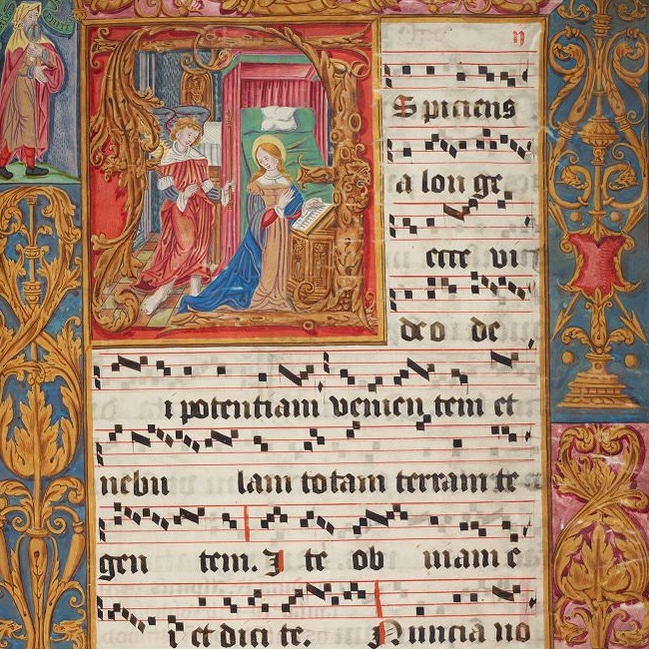 Spiciens
a lon ge
ecce vi
deo de
i potentiam venien tem et
nebu lam totam terram te
gen tem. I te ob uiam e
i et dici te. Nuncia no